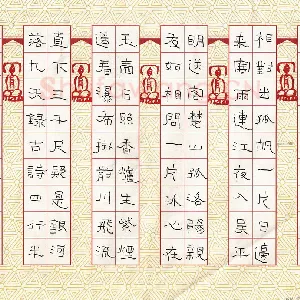 相對出孤帆一片日邊
來寒雨連江夜入吳平
明送客楚山孤洛陽親
友如相問一片冰心在
玉壺日照香爐生紫煙
遙看瀑布掛前川飛流
直下三千尺疑是銀河
落九天錄古詩四